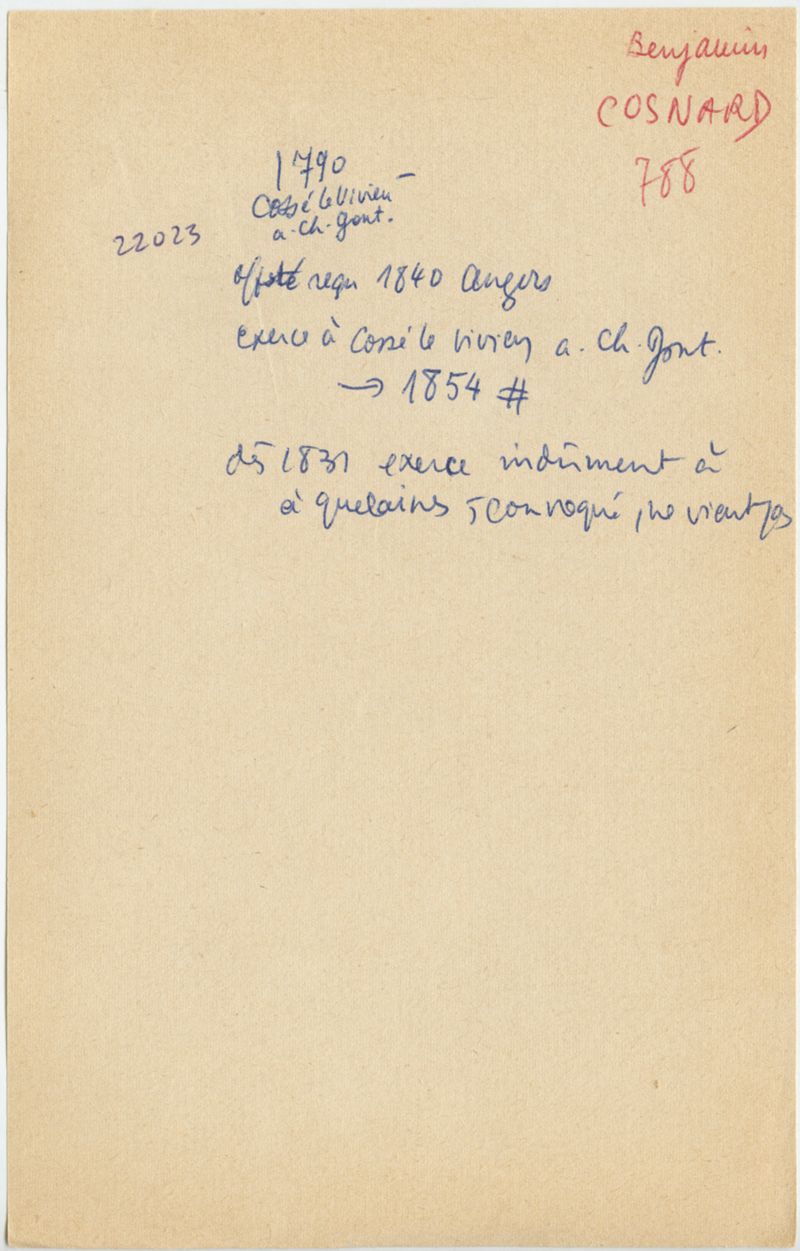 Benjamin
COSNARD
788
1790 –
Cossé le Vivien
a. Ch. Gont.
22023
reçu 1840 Angers
exerce à Cossé le Vivien a. Ch. Gont.
→ 1854 #
dès 1831 exerce indûment à
à Quelaines, convoqué, ne vient pas